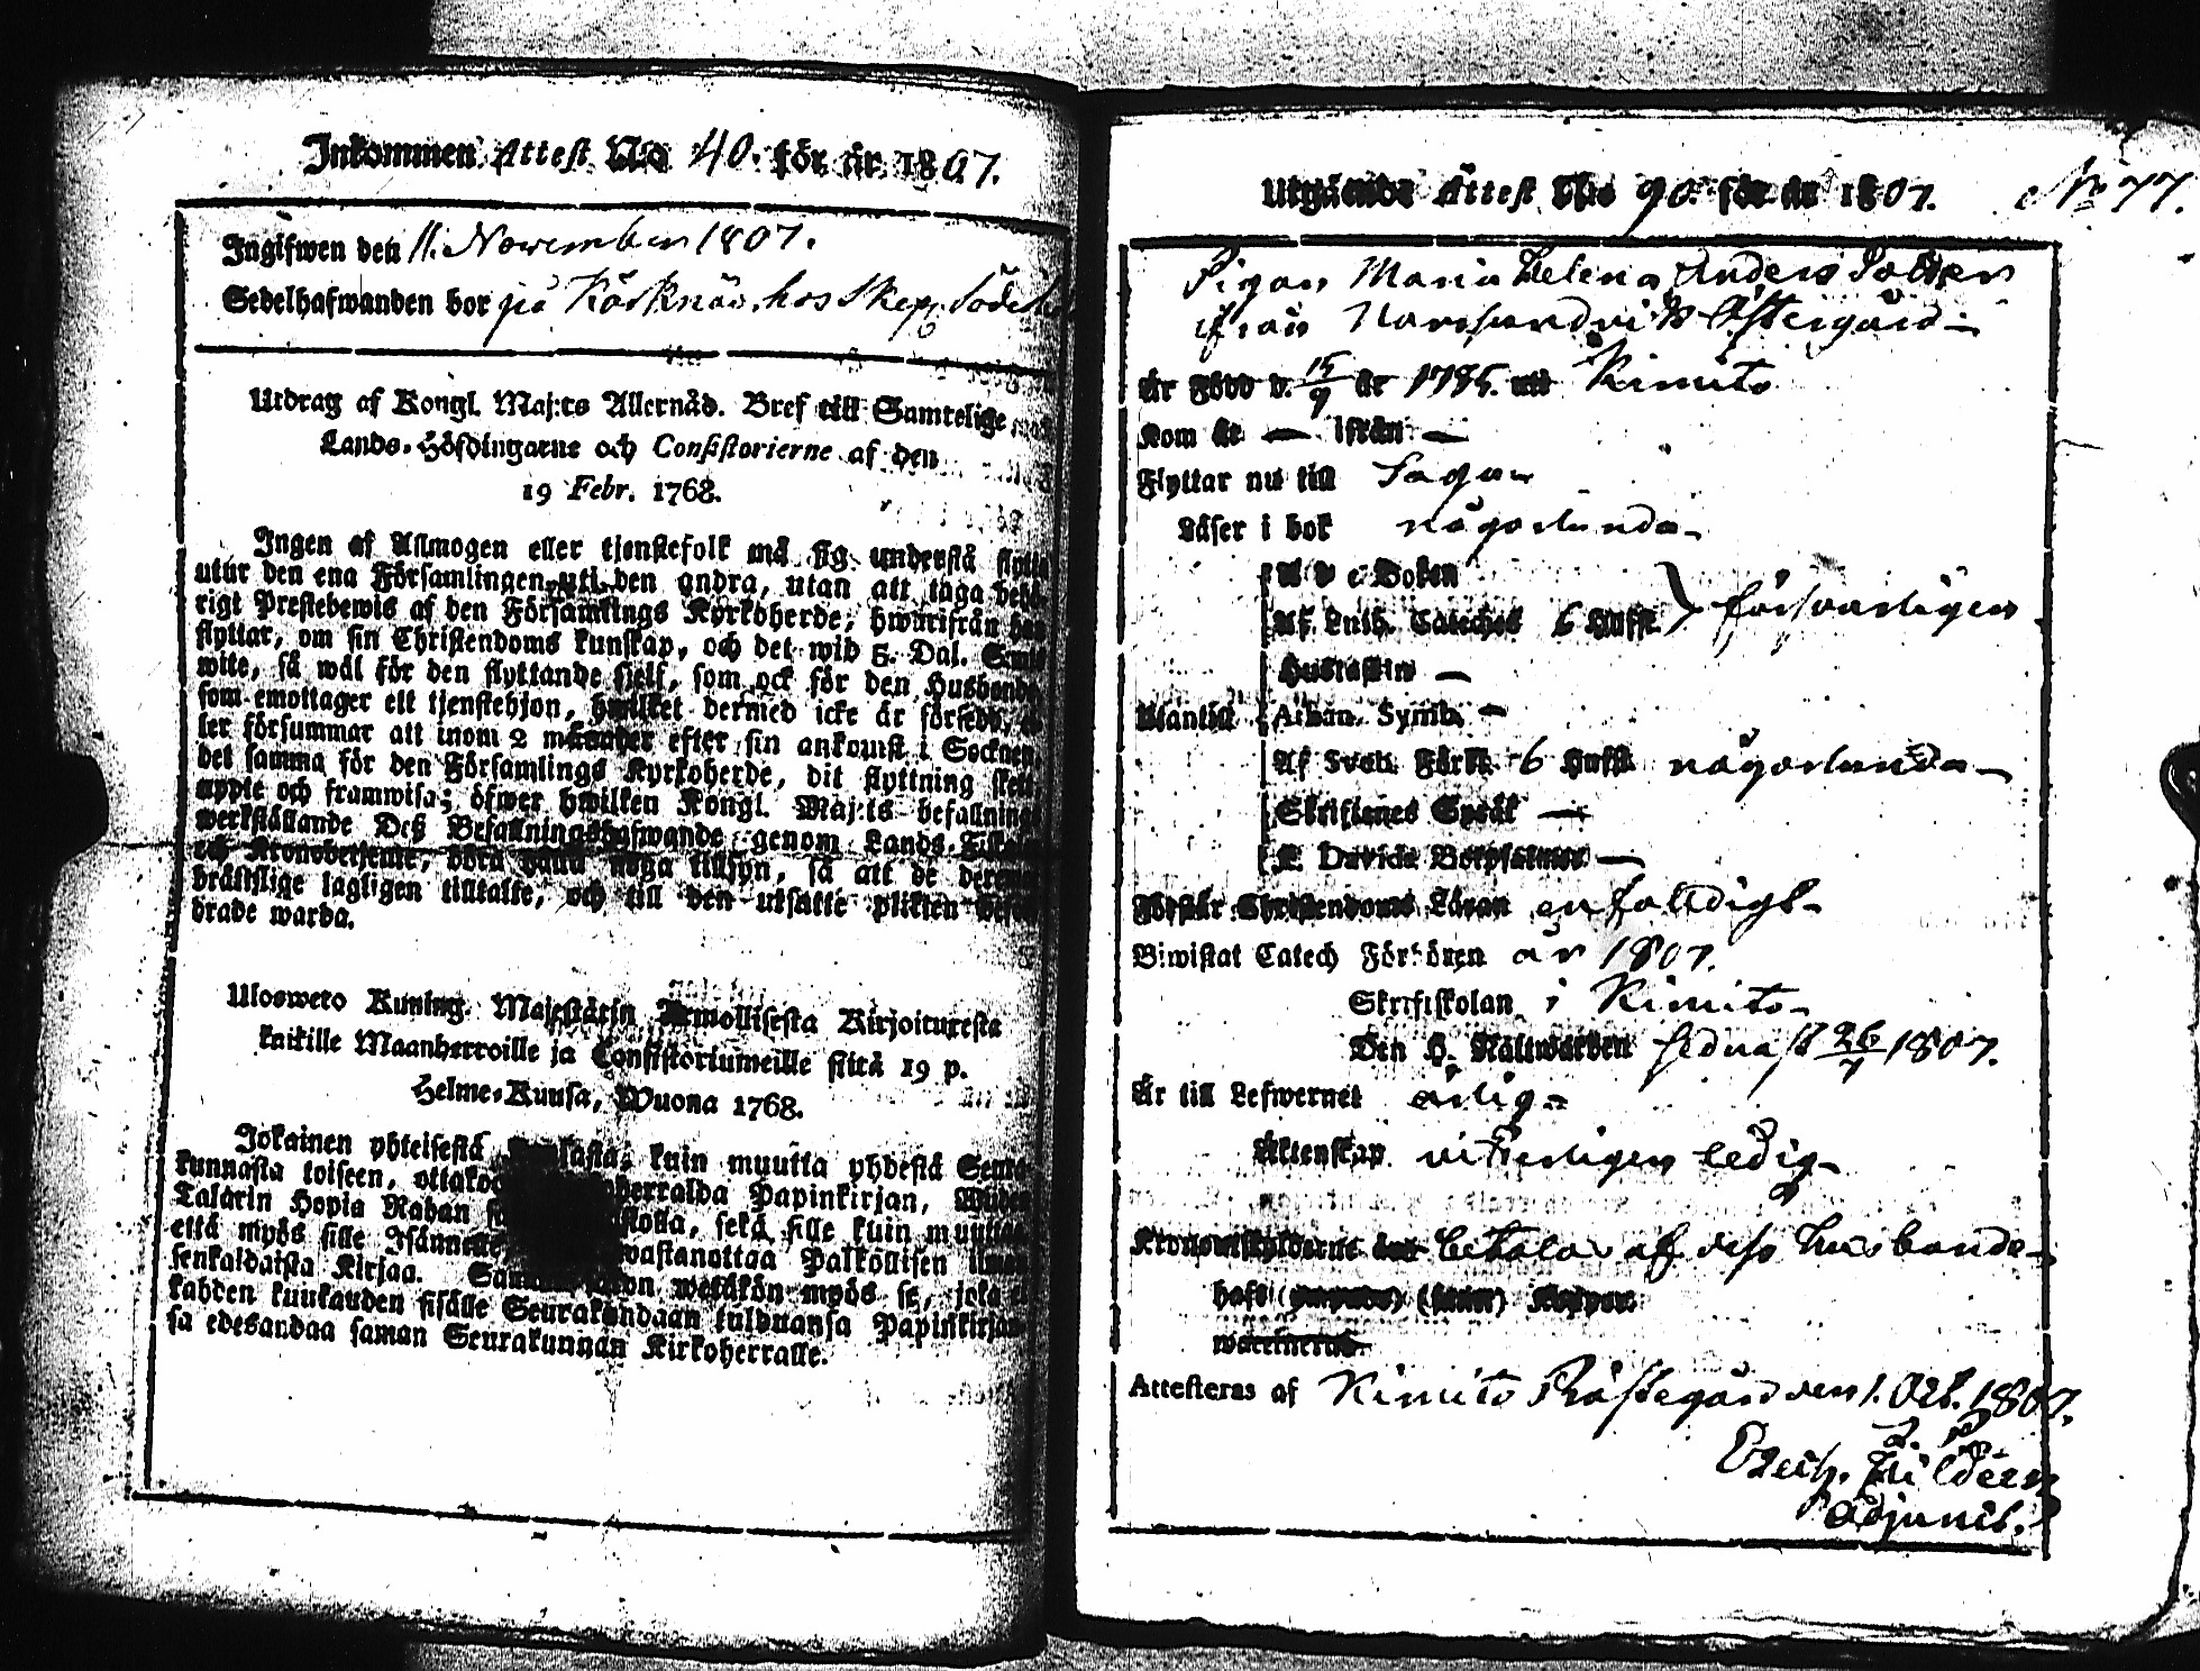 Inkommen Attest No 40. för år 1807.
Ingifwen den 11. November 1807.
Sedelhafwanden bor på Kårknäs hos Skepp
Utdrag af Kongl. Maj:ts Allernåd. Bref till Samtelige
Lands-Höfdingarne och Consistorierne af den
19 Febr. 1768.
Ingen af Allmogen eller tjenstefolk må sig understå flytta
utur den ena Församlingen uti den andra, utan att taga behö-
rigt Prestebewis af den Församlings Kyrkoherde, hwarifrån han
flyttar, om sin Christendoms kunskap, och det wid 5. Dal. Smts
wite, så wäl för den flyttande sielf, som ock för den Husbonde,
som emottager ett tjenstehjon, hwilket dermed icke är försedt, el-
ler försummar att inom 2 månader efter sin ankomst i Socknen,
det samma för den Församlings Kyrkoherde, dit flyttning skett,
uppte och framwisa; öfwer hwilken Kongl. Maj:ts befallnings
werkställande Deß Befallningshafwande genom Lands-Fiskaler
och Kronobetjente, böra hafwa noga tillsyn, så att de deremot
bräslige lagligen tilltalte, och till den utsatte plikten befor-
drade warda.
Ulosweto Kuning. Majestätin Armollisesta Kirjoituresta
kaikille Maanherroille ja Consistoriumeille siitä 19 p.
Helme-Kuusa, Wuona 1768.
Jokainen yhteisestä kuin muutta yhdestä Seura-
kunnasta toiseen, ottakoon Papinkirjan, Wiiden
Talarin Hopia Rahan sekä sille kuin muuttaa
että myös sille Isännälle, wastanottaa Palkollisen ilman
senkaldaista Kirjaa. wetäkön myös se, joka ei
kahden kuukauden sisälle Seurakundaan tulduansa Papinkirjan-
sa edesandaa saman Seurakunnan Kirkoherralle.
Utgående Attest No 90. för år 1807. No 77.
Pigan Maria Helena Anders Dotter
ifrån Östergård
Är Född d. 15/9 år 1785. uti Kimito
Kom år — ifrån —
Flyttar nu till Sagu
Läser i bok någorlunda
A b c Boken
Af Luth. Cateches 6 Hufst. } försvarligen
Hustaflan —
Utantill Athan. Symb. —
Af Sveb. Förkl. 6 Hufst. någorlunda
Skriftenes Språk —
K. Davids Botpsalmer —
Förstår Christendoms Läran enfaldigt
Biwistat Catech Förhören år 1807.
Skriftskolan i Kimito
Den H. Nattwarden sednast 26/7 1807.
Är till Lefwernet ärlig
Äktenskap witterligen ledig
Kronoutskylderne betalas af dess husbonde
Attesteras af Kimito Prästegård den 1. Oct. 1807.
Adjunct.